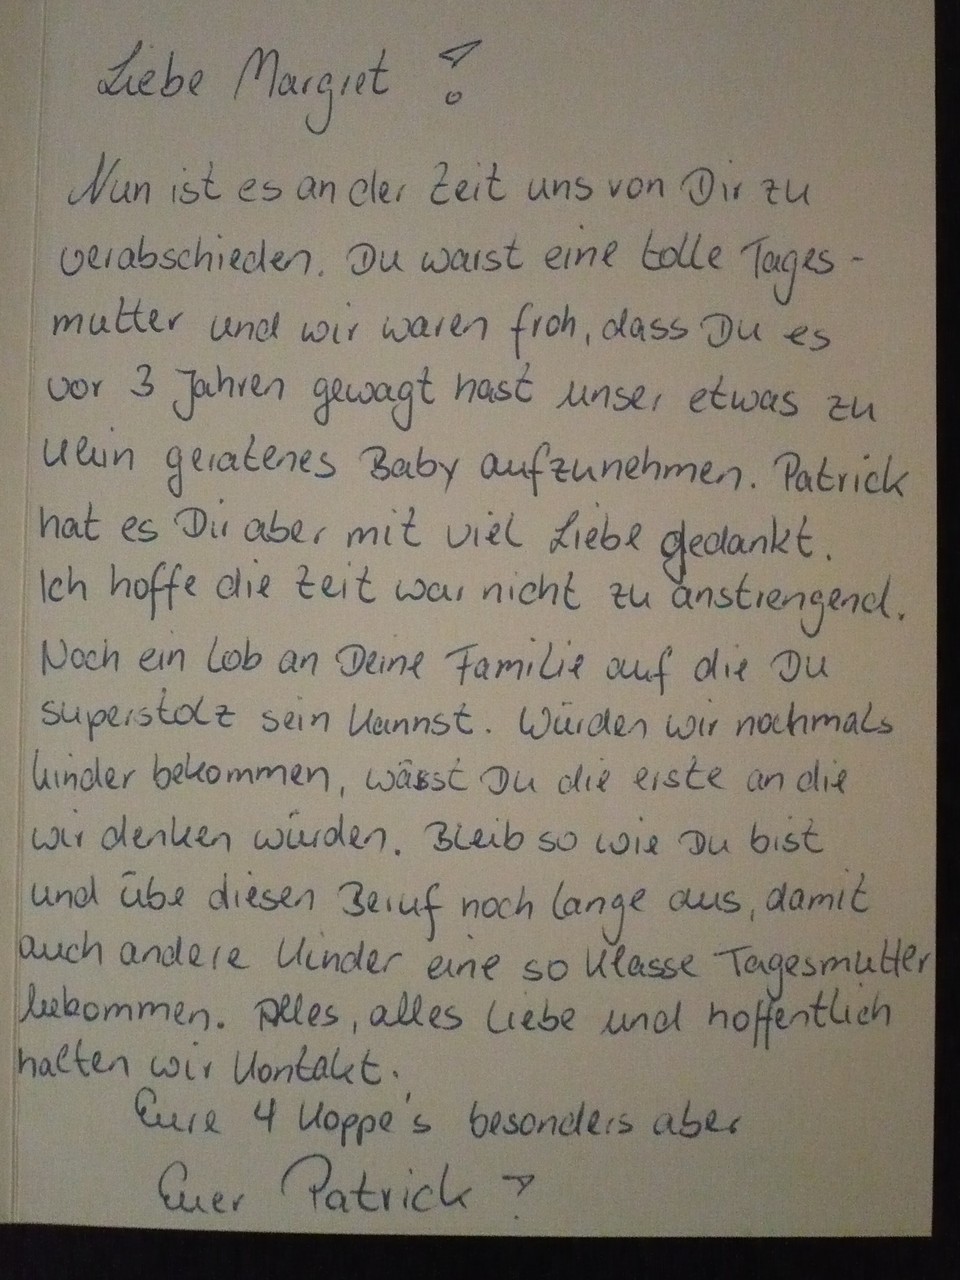 Liebe Margret !
Nun ist es an der Zeit uns von Dir zu
verabschieden. Du warst eine tolle Tages-
mutter und wir waren froh, dass Du es
vor 3 Jahren gewagt hast unser etwas zu
klein geratenes Baby aufzunehmen. Patrick
hat es Dir aber mit viel Liebe gedankt.
Ich hoffe die Zeit war nicht zu anstrengend.
Noch ein Lob an Deine Familie auf die Du
superstolz sein kannst. Würden wir nochmals
Kinder bekommen, wärst Du die erste an die
wir denken würden. Bleib so wie Du bist
und übe diesen Beruf noch lange aus, damit
auch andere Kinder eine so klasse Tagesmutter
bekommen. Alles, alles Liebe und hoffentlich
halten wir Kontakt.
Eure 4 Koppe's besonders aber
Euer Patrick !